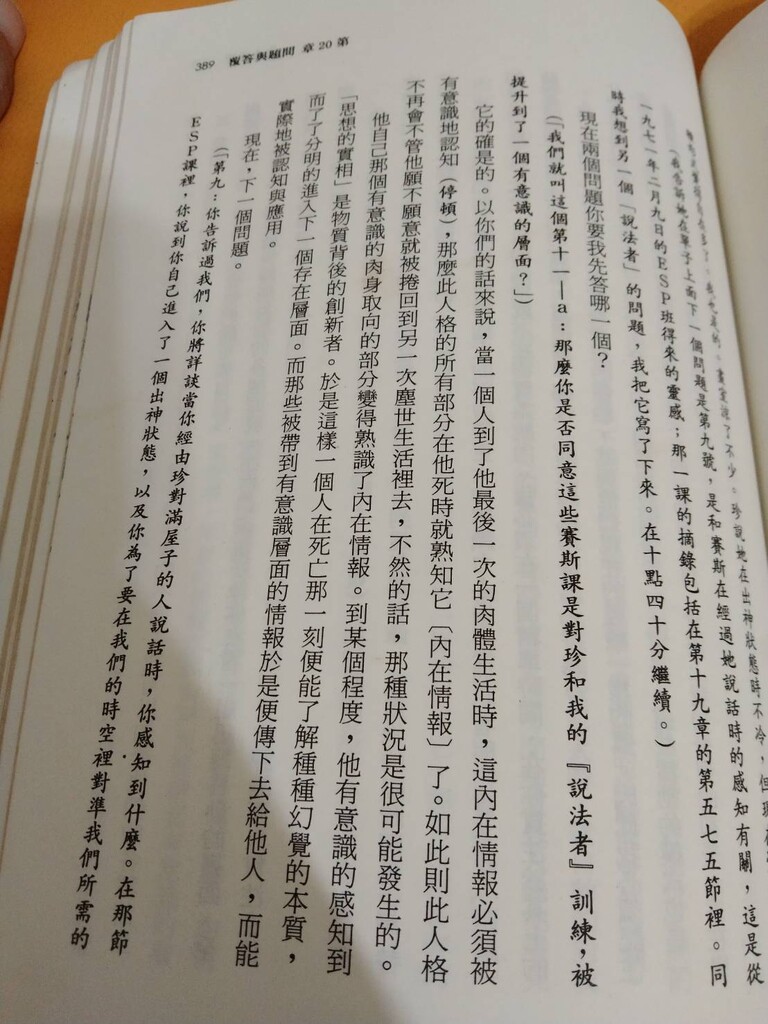 389 覆答與題問 章 20 第
（我告訴她在單子上面下一個問題是第九號，是和賽斯在經過她說話時的感知有關，這是從
一九七一年二月九日的ＥＳＰ班得來的靈感；那一課的摘錄包括在第十九章的第五七五節裡。同
時我想到另一個「說法者」的問題，我把它寫了下來。在十點四十分繼續。）
現在兩個問題你要我先答哪一個？
（「我們就叫這個第十一—a：那麼你是否同意這些賽斯課是對珍和我的『說法者』訓練，被
提升到了一個有意識的層面？」）
它的確是的。以你們的話來說，當一個人到了他最後一次的肉體生活時，這內在情報必須被
有意識地認知（停頓），那麼此人格的所有部分在他死時就熟知它〔內在情報〕了。如此則此人格
不再會不管他願不願意就被捲回到另一次塵世生活裡去，不然的話，那種狀況是很可能發生的。
他自己那個有意識的肉身取向的部分變得熟識了內在情報。到某個程度，他有意識的感知到
「思想的實相」是物質背後的創新者。於是這樣一個人在死亡那一刻便能了解種種幻覺的本質，
而了了分明的進入下一個存在層面。而那些被帶到有意識層面的情報於是便傳下去給他人，而能
實際地被認知與應用。
現在，下一個問題。
（「第九：你告訴過我們，你將詳談當你經由珍對滿屋子的人說話時，你感知到什麼。在那節
ＥＳＰ課裡，你說到你自己進入了一個出神狀態，以及你為了要在我們的時空裡對準我們所需的